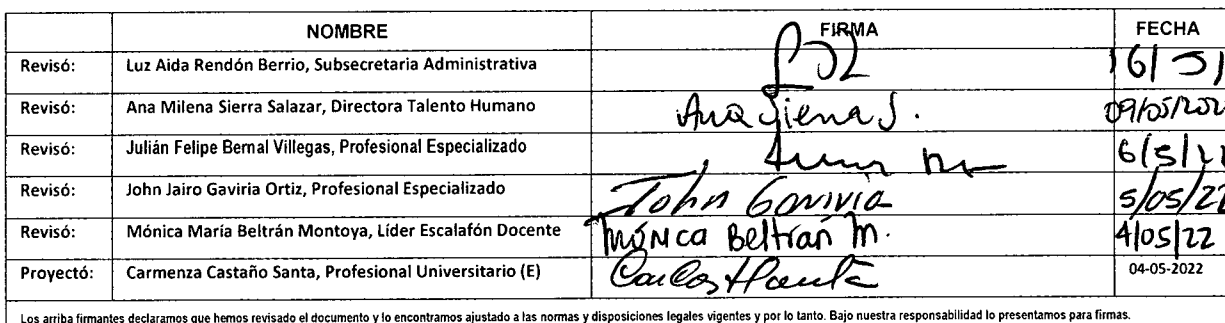 NOMBRE FIRMA FECHA
Revisó: Luz Aida Rendón Berrio, Subsecretaria Administrativa 16/
Revisó: Ana Milena Sierra Salazar, Directora Talento Humano Ana Sierra S. 09/05/202
Revisó: Julián Felipe Bernal Villegas, Profesional Especializado 6/5/
Revisó: John Jairo Gaviria Ortiz, Profesional Especializado John Gaviria 5/05/22
Revisó: Mónica María Beltrán Montoya, Líder Escalafón Docente Mónica Beltrán M. 4/05/22
Proyectó: Carmenza Castaño Santa, Profesional Universitario (E) 04-05-2022
Los arriba firmantes declaramos que hemos revisado el documento y lo encontramos ajustado a las normas y disposiciones legales vigentes y por lo tanto. Bajo nuestra responsabilidad lo presentamos para firmas.